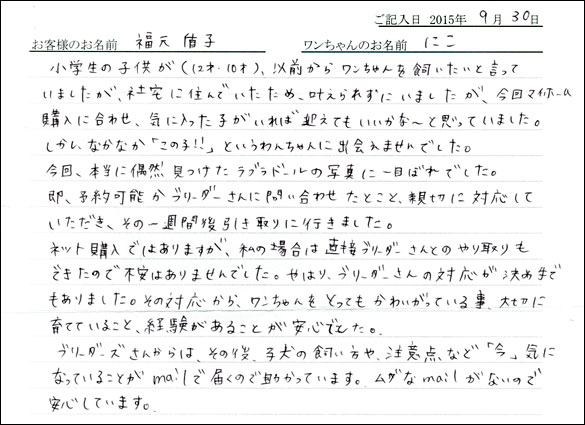 ご記入日 2015年 9月 30日
お客様のお名前 福元 貴子 ワンちゃんのお名前 にこ
小学生の子供が(12才・10才)、以前からワンちゃんを飼いたいと言って
いましたが、社宅に住んでいたため、叶えられずにいましたが、今回マイホーム
購入に合わせ、気に入った子がいれば迎えてもいいかな〜と思っていました。
しかし、なかなか「この子!!」というわんちゃんに出会えませんでした。
今回、本当に偶然見つけたラブラドールの写真に一目ぼれでした。
即、予約可能かブリーダーさんに問い合わせたとこと、親切に対応して
いただき、その一週間後引き取りに行きました。
ネット購入ではありますが、私の場合は直接ブリーダーさんとのやり取りも
できたので不安はありませんでした。やはり、ブリーダーさんの対応が決め手で
もありました。その対応から、ワンちゃんをとってもかわいがっている事、大切に
育てていること、経験があることが安心でした。
ブリーダーズさんからは、その後、子犬の飼い方や、注意点など「今」気に
なっていることがmailで届くので助かっています。ムダなmailがないので
安心しています。